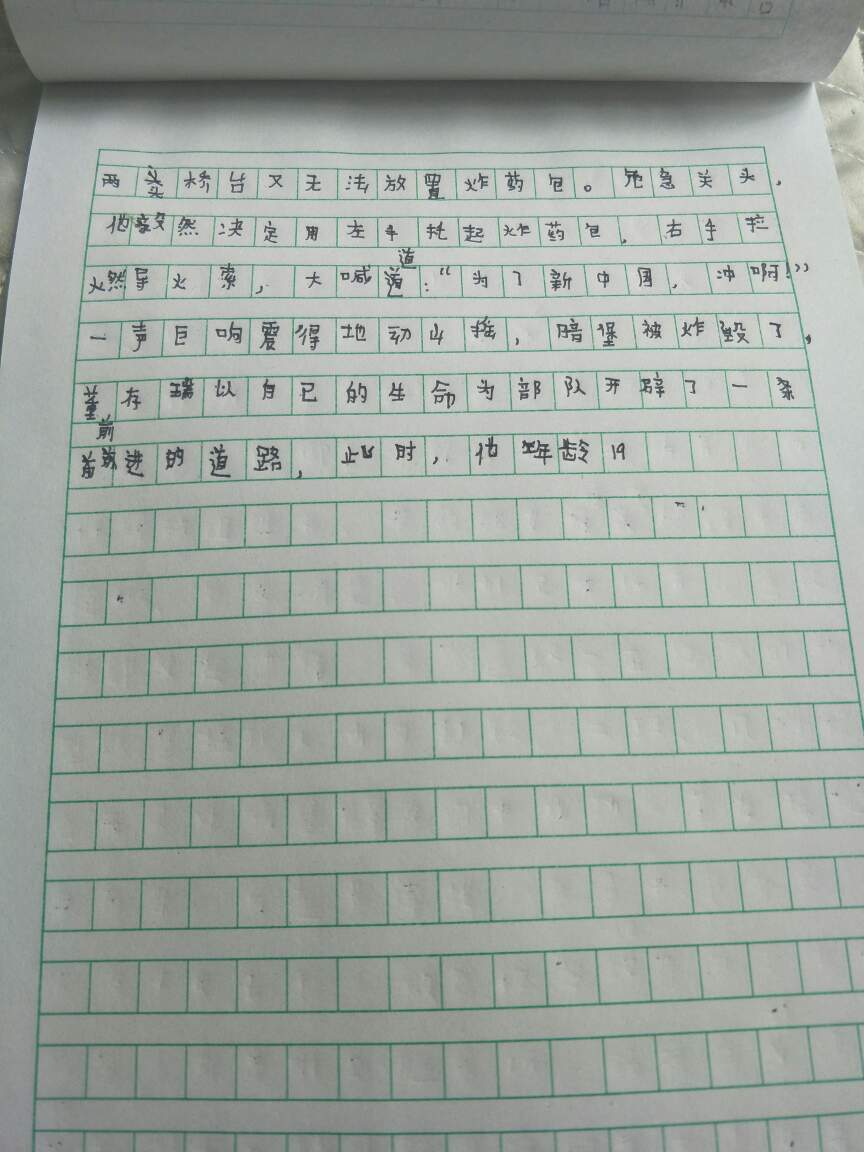 两头桥台又无法放置炸药包。危急关头，
他毅然决定用左手托起炸药包，右手拉
燃导火索，大喊道：“为了新中国，冲啊！”
一声巨响震得地动山摇，暗堡被炸毁了，
董存瑞以自己的生命为部队开辟了一条
前进的道路，此时，他年龄19